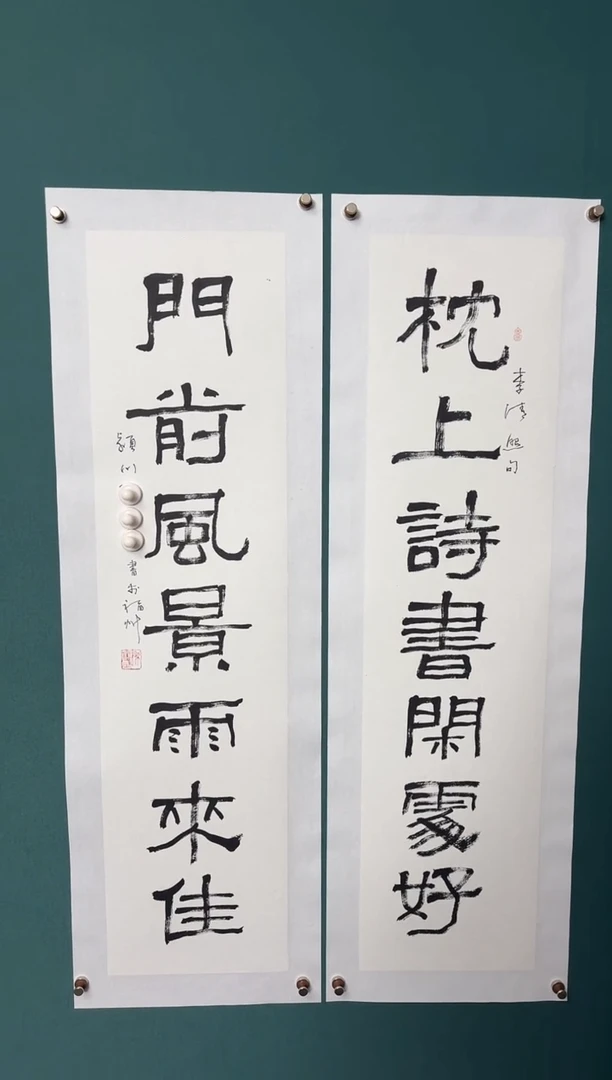 枕上詩書閑處好
李清照句
門前風景雨來佳
潁川
書於福州